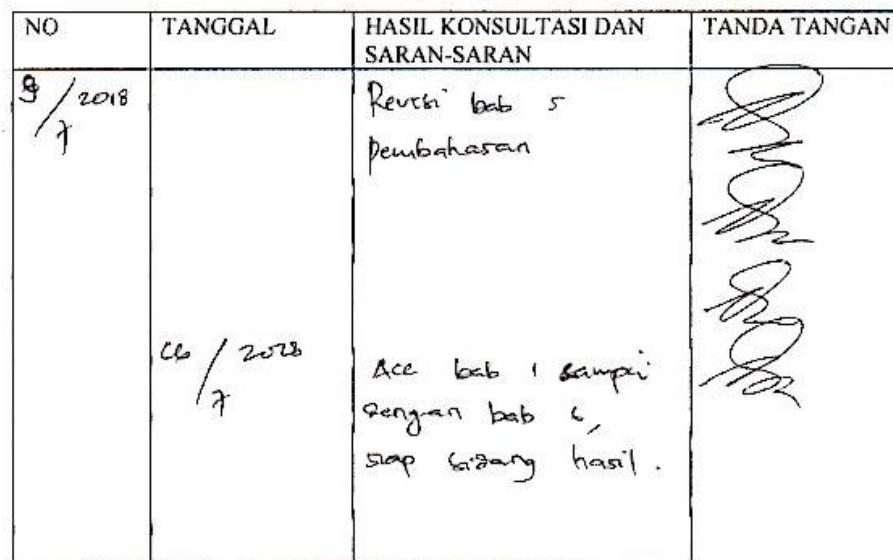 NO TANGGAL HASIL KONSULTASI DAN SARAN-SARAN TANDA TANGAN
9/7 2018 Revisi bab 5
pembahasan
/7 Acc bab 1 sampai
dengan bab 6,
siap sidang hasil.